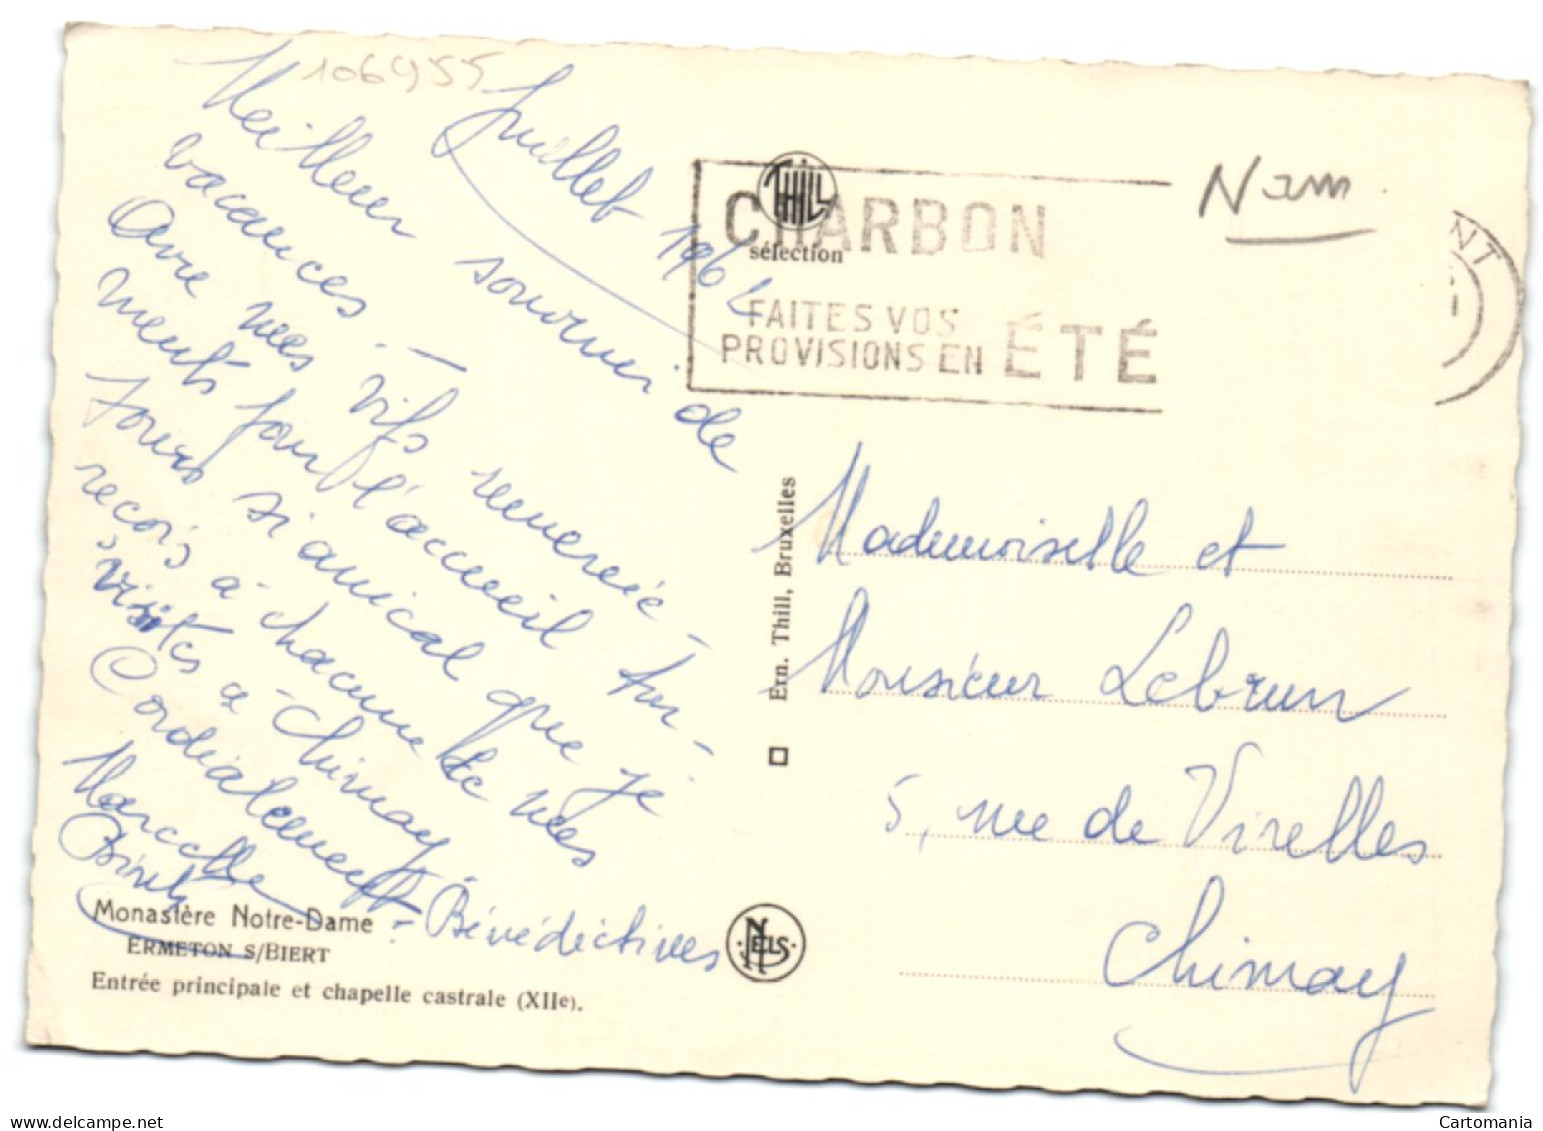 106955
Juillet 1962
Meilleur souvenir de
vacances. —
Avec mes vifs remercie-
ments pour l'accueil tou-
jours si amical que je
reçois à chacune de mes
visites à Chimay.
Cordialement
Marcelle
- Bénédictines
Monastère Notre-Dame
ERMETON S/BIERT
Entrée principale et chapelle castrale (XIIe).
THILL
sélection
CHARBON
FAITES VOS
PROVISIONS EN ÉTÉ
Nam
NT
Ern. Thill, Bruxelles
NELS
Mademoiselle et
Monsieur Lebrun
5, rue de Virelles
Chimay
delcampe.net
Cartomania